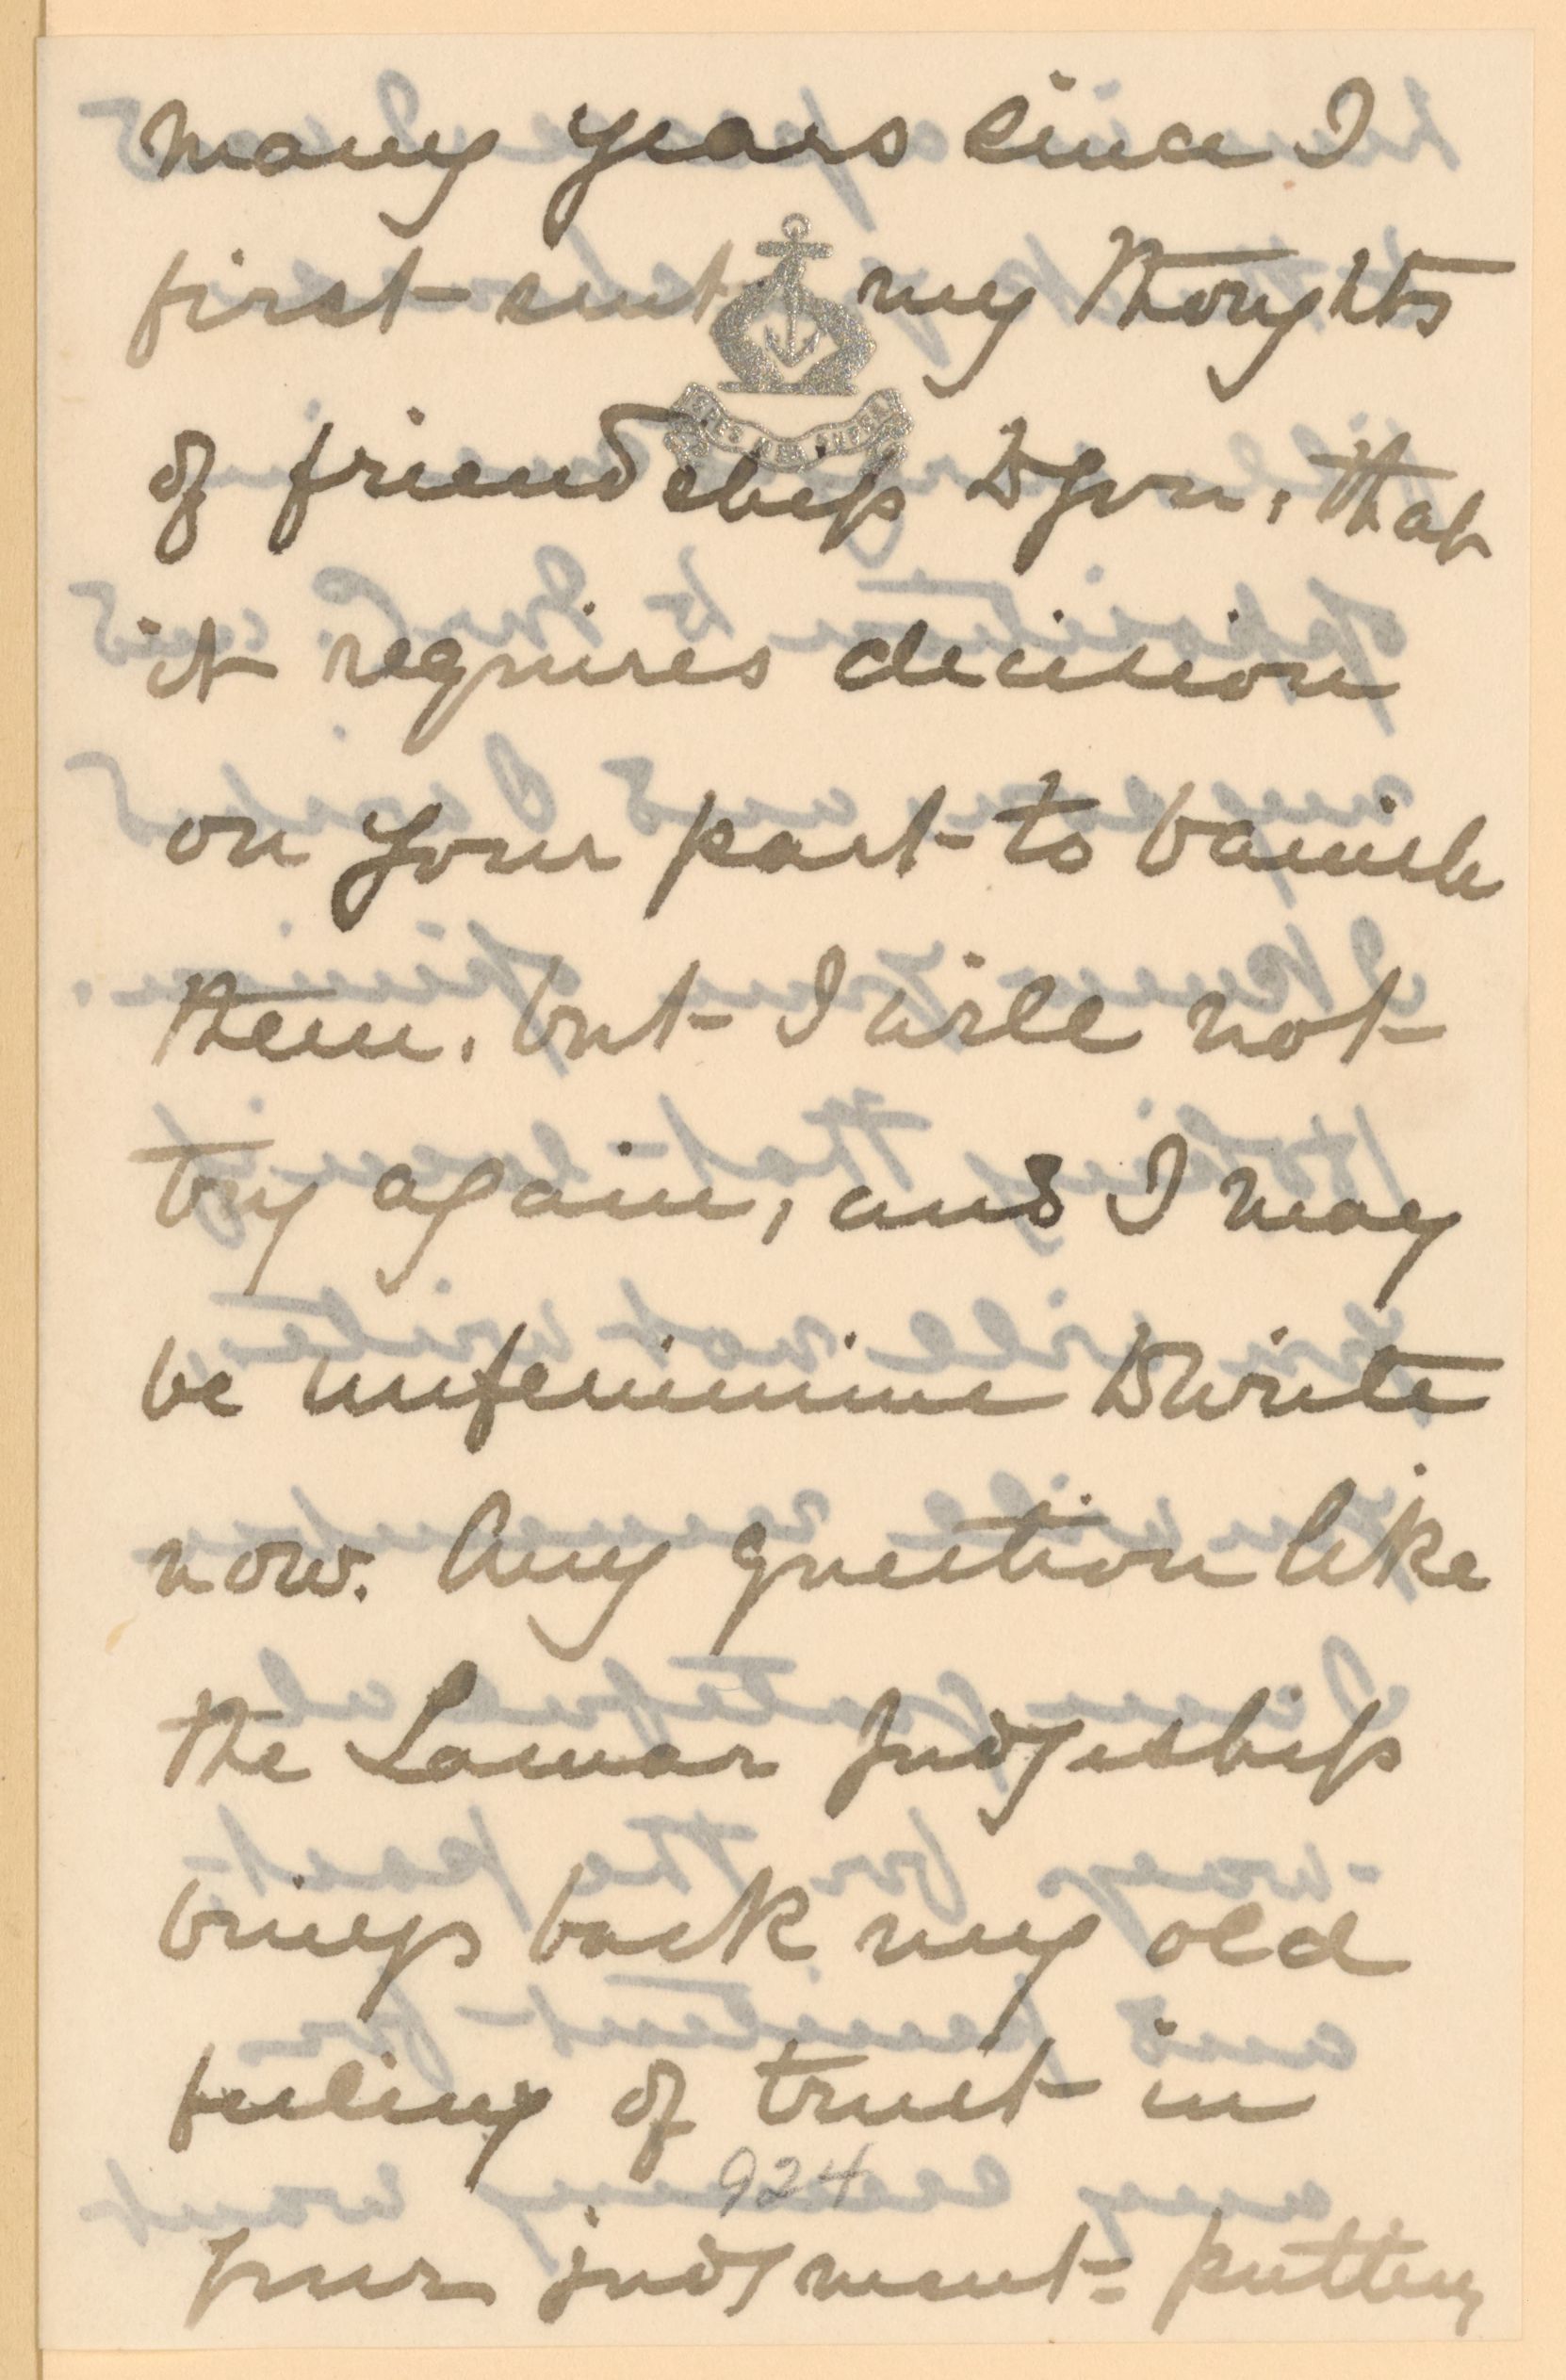 many years since I
first sent my thoughts
of friendship to you, that
it requires decision
on your part to banish
them. but I will not
try again, and I may
be unfeminine to write
now. Any question like
the Lamar Judgeship
brings back my old
feeling of trust in
924
your judgment - putting